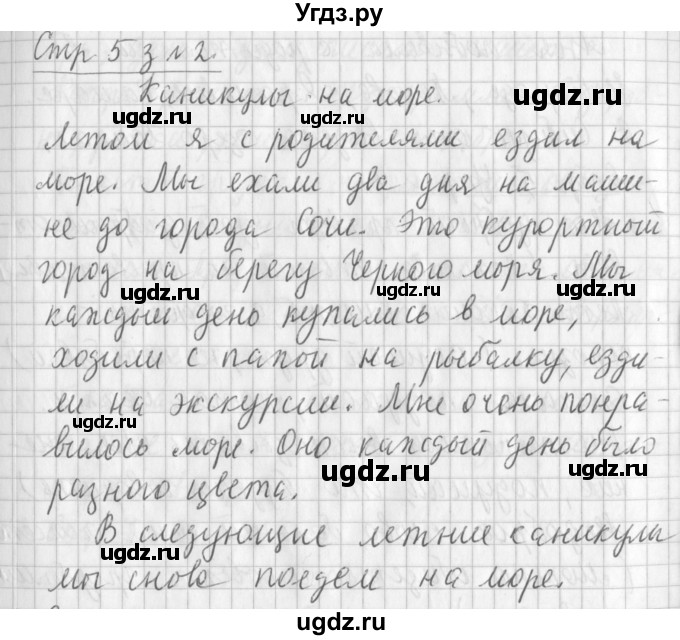 Угдз.ру
Стр 5 з №2.
Каникулы на море.
Летом я с родителями ездил на
море. Мы ехали два дня на маши-
не до города Сочи. Это курортный
город на берегу Черного моря. Мы
каждый день купались в море,
ходили с папой на рыбалку, езди-
ли на экскурсии. Мне очень понра-
вилось море. Оно каждый день было
разного цвета.
В следующие летние каникулы
мы снова поедем на море.
ugdz.ru
ugdz.ru
ugdz.ru
ugdz.ru
ugdz.ru
ugdz.ru
ugdz.ru
ugdz.ru
ugdz.ru
ugdz.ru
ugdz.ru
ugdz.ru
ugdz.ru